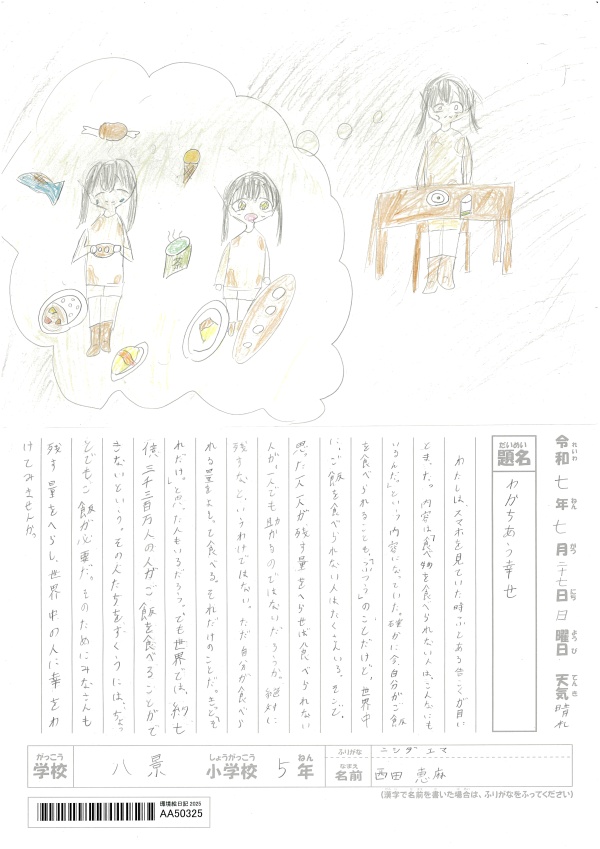 令和七年七月二十七日日曜日 天気晴れ
題名 わかちあう幸せ
わたしは、スマホを見ていた時ふとある広こくが目に
とまった。内容は「食べ物を食べられない人は、こんなにも
いるんだ。」という内容になっていた。確かに今、自分がご飯
を食べられることも、「ふつう」のことだけど、世界中
に、ご飯を食べられない人はたくさんいる。そこで、
思った。一人一人が残す量をへらせば食べられない
人が一人でも助かるのではないだろうか。絶対に
残すなというわけではない。ただ自分が食べら
れる量をよそって食べる。それだけのことだ。きっと「そ
れだけ。」と思った人もいるだろう。でも世界では、約七
億、三千三百万人の人がご飯を食べることがで
きないという。その人たちをすくうには、ちょっ
とでもご飯が必要だ。そのためにみなさんも
残す量をへらし、世界中の人に幸をわ
けてみませんか。
学校 八景 小学校 5年
ふりがな ニシダ エマ
名前 西田 恵麻
(漢字で名前を書いた場合は、ふりがなをふってください)
環境絵日記 2025
AA50325
茶